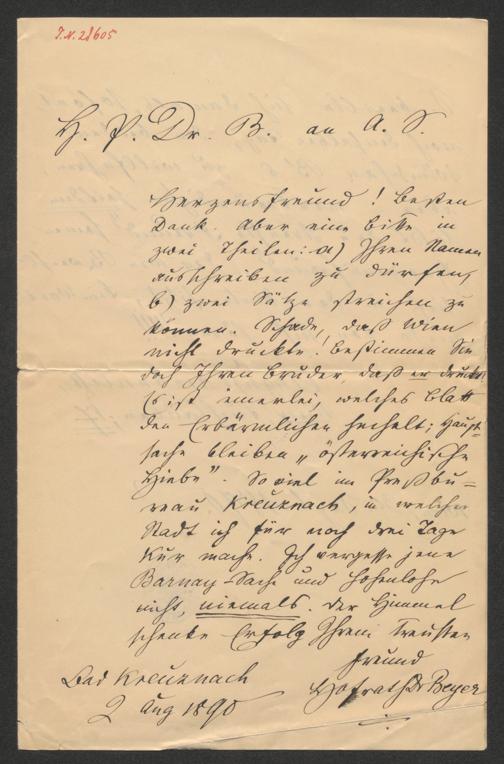 J.N. 21605
H. P. Dr. B. an A. S.
Herzensfreund! Besten
Dank. Aber eine Bitte in
zwei Theilen: a) Ihren Namen
ausschreiben zu dürfen,
b) zwei Sätze streichen zu
können. Schade, daß Wien
nicht druckte! Bestimmen Sie
doch Ihren Bruder, daß er druckt.
Es ist einerlei, welches Blatt
den Erbärmlichen hechelt; Haupt-
sache bleiben „österreichische
Hiebe". Soviel im Preßbu-
reau Kreuznach, in welcher
Stadt ich für noch drei Tage
Kur mache. Ich vergesse jene
Barnay-Sache und Hohenlohe
nicht, niemals. Der Himmel
schenke Erfolg Ihrem Treusten
Freund
Bad Kreuznach
2 Aug 1890
Hofrath Dr Beyer